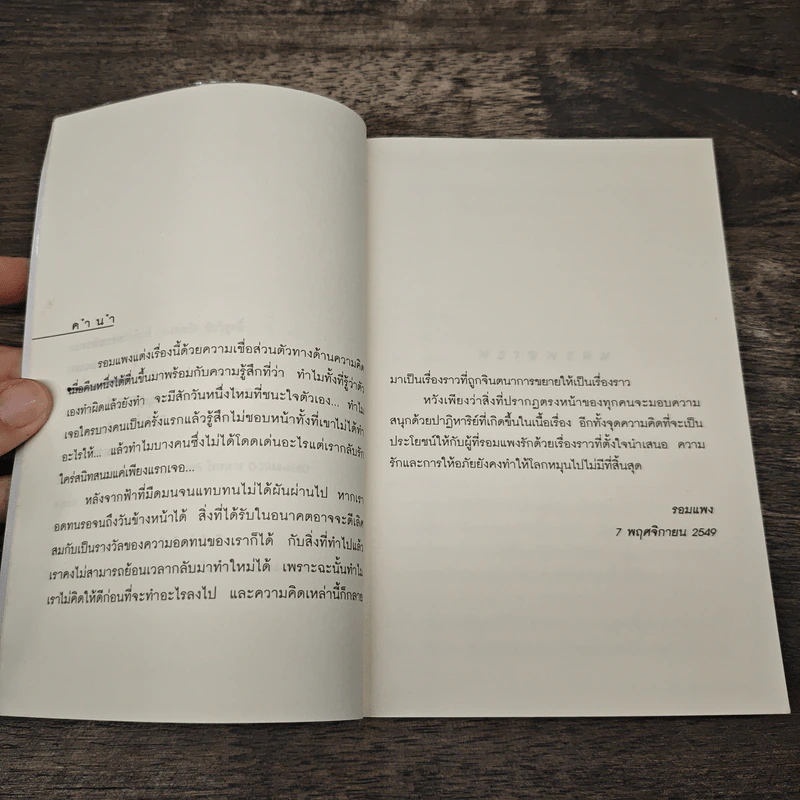 คำนำ
รอมแพงแต่งเรื่องนี้ด้วยความเชื่อส่วนตัวทางด้านความคิด
เมื่อคืนหนึ่งได้ตื่นขึ้นมาพร้อมกับความรู้สึกที่ว่า ทำไมทั้งที่รู้ว่าตัว
เองทำผิดแล้วยังทำ จะมีสักวันหนึ่งไหมที่ชนะใจตัวเอง... ทำไม
เจอใครบางคนเป็นครั้งแรกแล้วรู้สึกไม่ชอบหน้าทั้งที่เขาไม่ได้ทำ
อะไรให้... แล้วทำไมบางคนซึ่งไม่ได้โดดเด่นอะไรแต่เรากลับรัก
ใคร่สนิทสนมแค่เพียงแรกเจอ...
หลังจากฟ้าที่มืดมนจนแทบทนไม่ได้ผันผ่านไป หากเรา
อดทนรอจนถึงวันข้างหน้าได้ สิ่งที่ได้รับในอนาคตอาจจะดีเลิศ
สมกับเป็นรางวัลของความอดทนของเราก็ได้ กับสิ่งที่ทำไปแล้ว
เราคงไม่สามารถย้อนเวลากลับมาทำใหม่ได้ เพราะฉะนั้นทำไม
เราไม่คิดให้ดีก่อนที่จะทำอะไรลงไป และความคิดเหล่านี้ก็กลาย
มาเป็นเรื่องราวที่ถูกจินตนาการขยายให้เป็นเรื่องราว
หวังเพียงว่าสิ่งที่ปรากฏตรงหน้าของทุกคนจะมอบความ
สนุกด้วยปาฏิหาริย์ที่เกิดขึ้นในเนื้อเรื่อง อีกทั้งจุดความคิดที่จะเป็น
ประโยชน์ให้กับผู้ที่รอมแพงรักด้วยเรื่องราวที่ตั้งใจนำเสนอ ความ
รักและการให้อภัยยังคงทำให้โลกหมุนไปไม่มีที่สิ้นสุด
รอมแพง
7 พฤศจิกายน 2549